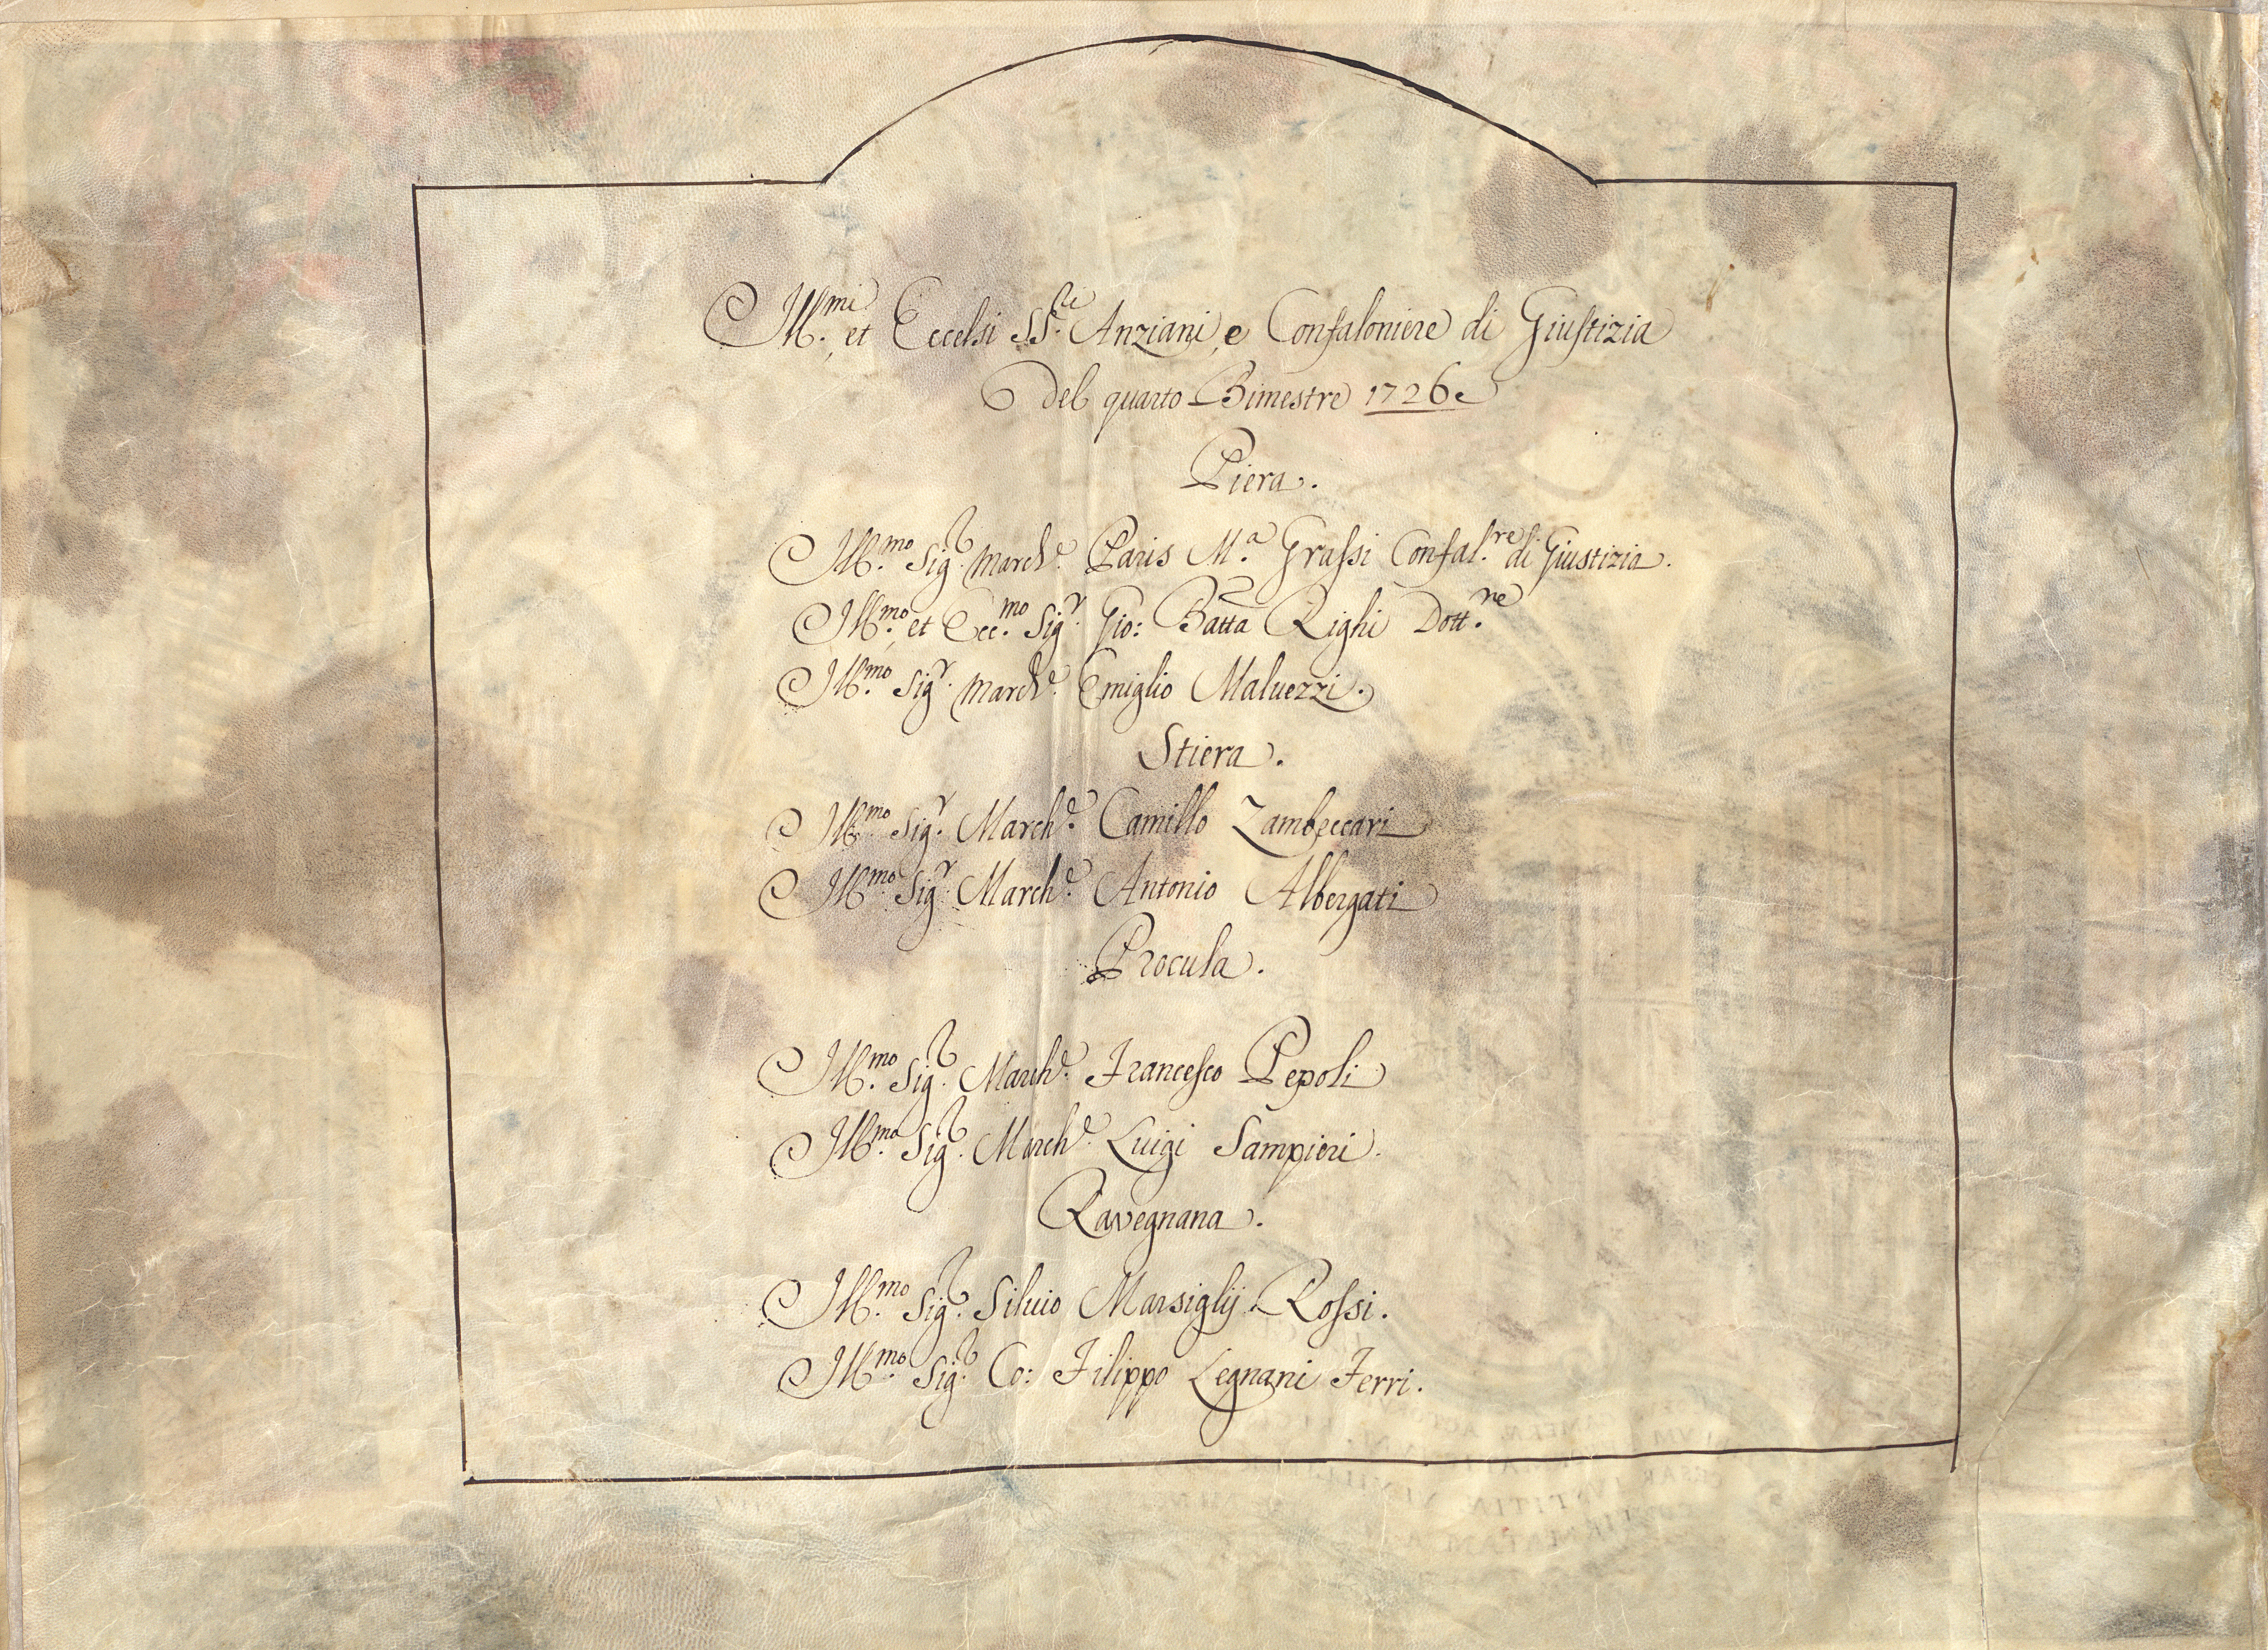 Ill.mi et Eccelsi SS.ri Anziani, e Confaloniere di Giustizia
Del quarto Bimestre 1726
Piera.
Ill.mo Sig.r March.e Paris M.a Grassi Confal.re di Giustizia.
Ill.mo et Ecc.mo Sig.r Gio: Batta Righi Dott.re
Ill.mo Sig.r March.e Emiglio Maluezzi.
Stiera.
Ill.mo Sig.r March.e Camillo Zambeccari
Ill.mo Sig.r March.e Antonio Albergati
Procula.
Ill.mo Sig.r March.e Francesco Pepoli
Ill.mo Sig.r March.e Luigi Sampieri.
Ravegnana.
Ill.mo Sig.r Siluio Marsiglij Rossi.
Ill.mo Sig.r Co: Filippo Legnani Ferri.